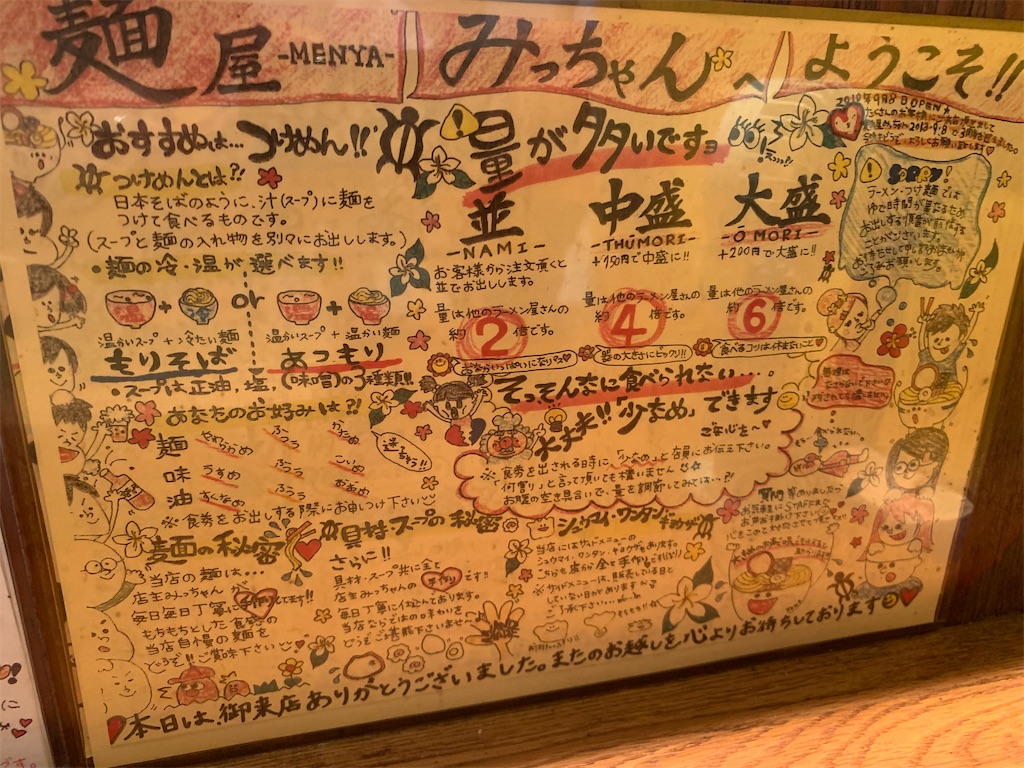 麺屋 -MENYA- みっちゃんへ ようこそ!!
2010年9月8日OPEN
おすすめは… つけめん!!
つけめんとは?!
日本そばのように、汁(スープ)に麺を
つけて食べるものです。
(スープと麺の入れ物を別々にお出しします。)
・麺の冷・温が選べます!!
or
温かいスープ + 冷たい麺
温かいスープ + 温かい麺
もりそば
あつもり
・スープは、正油、塩、(味噌)の3種類!!
量が多いですョ
並
-NAMI-
お客様から注文頂くと
並でお出しします。
量は他のラーメン屋さんの
約2倍です。
中盛
-THUMORI-
+150円で中盛に!!
量は他のラーメン屋さんの
約4倍です。
大盛
-ŌMORI-
+200円で大盛に!!
量は他のラーメン屋さんの
約6倍です。
器の大きさにビックリ!!
食べるコツは休まないこと
SORRY!
ラーメン・つけ麺では
ゆで時間が異なるため
お出しする順番が前後する
ことがございます。
そっそんなに食べられない…。
大丈夫!!「少なめ」できます
ご安心を〜
※食券を出される時に「少なめ」と店員にお伝え下さい。
「何割り」と言って頂いても構いません
お腹の空き具合いで、量を調節してみては…?!
あなたのお好みは?!
麺 やわらかめ ふつう かため
味 うすめ ふつう こいめ
油 すくなめ ふつう おおめ
迷っちゃう!!
※食券をお出しする際にお申しつけ下さい
麺の秘密
当店の麺は…
店主みっちゃんが
毎日毎日丁寧に手作りしてます!!
もちもちとした食感の
当店自慢の麺を
どうぞ!!ご賞味下さい
具材・スープの秘密
さらに!!
具材・スープ共に全て
店主みっちゃんの手作りです!!
毎日丁寧に仕込んでおります。
当店ならではの味わを
どうぞご堪能下さいませ
シュウマイ・ワンタン・ギョウザ
当店にはサイドメニューの
シュウマイ、ワンタン、ギョウザもあります。
こちらも皮から全て手作り
※サイドメニューは、販売している日と
していない日があります
ご了承下さい…
本日は、御来店ありがとうございました。またのお越しを心よりお待ちしております